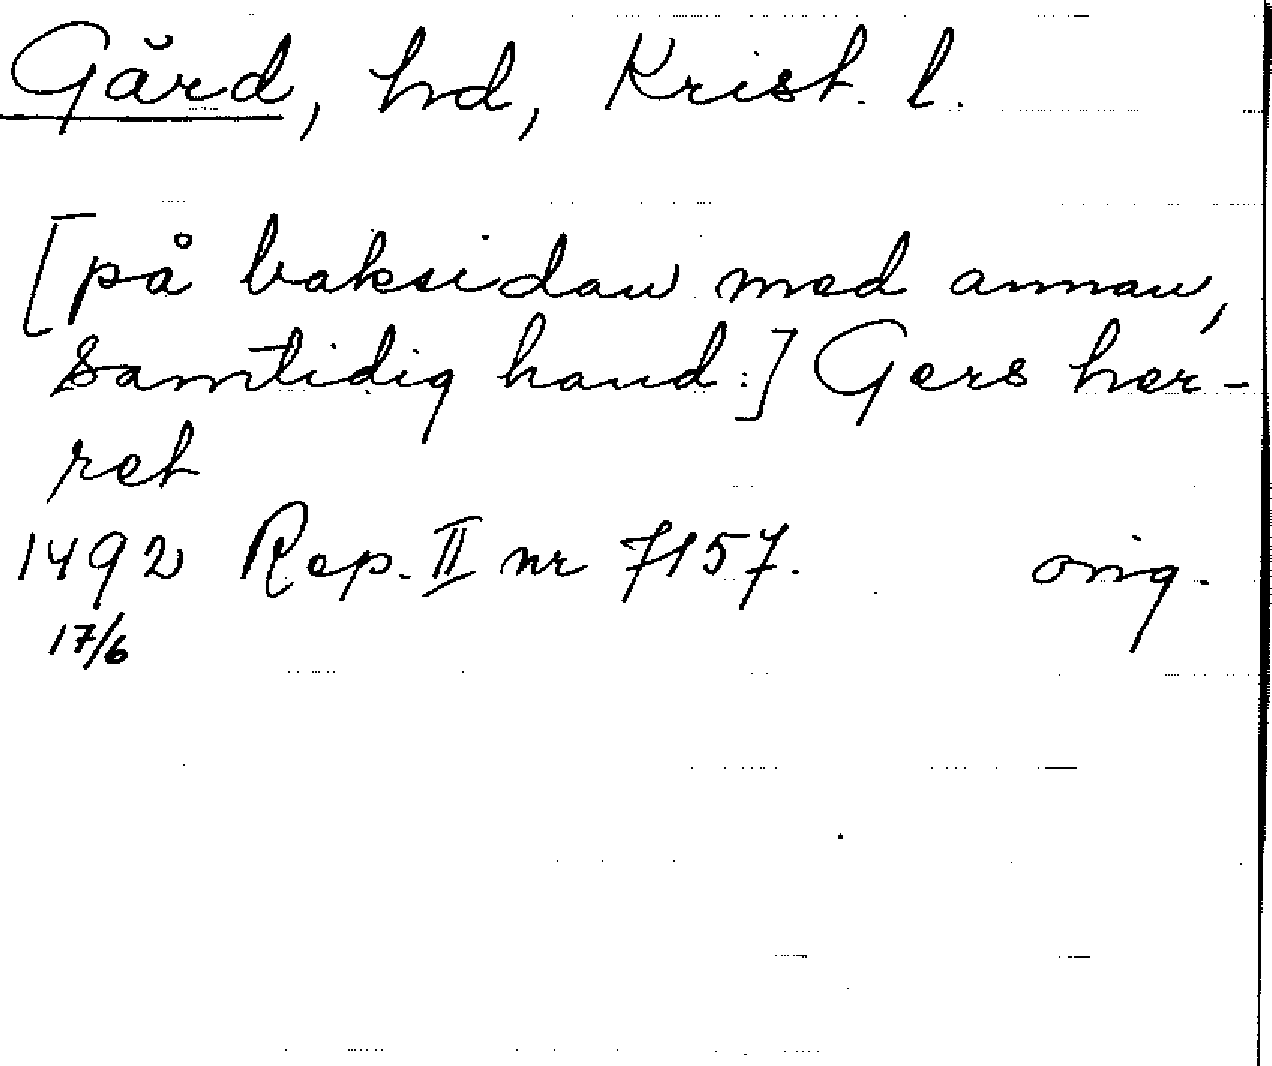 Gärd, hd, Krist. l.
[på baksidan med annan,
samtidig hand:] Gers her-
ret
1492 Rep. II nr 7157. orig.
17/6